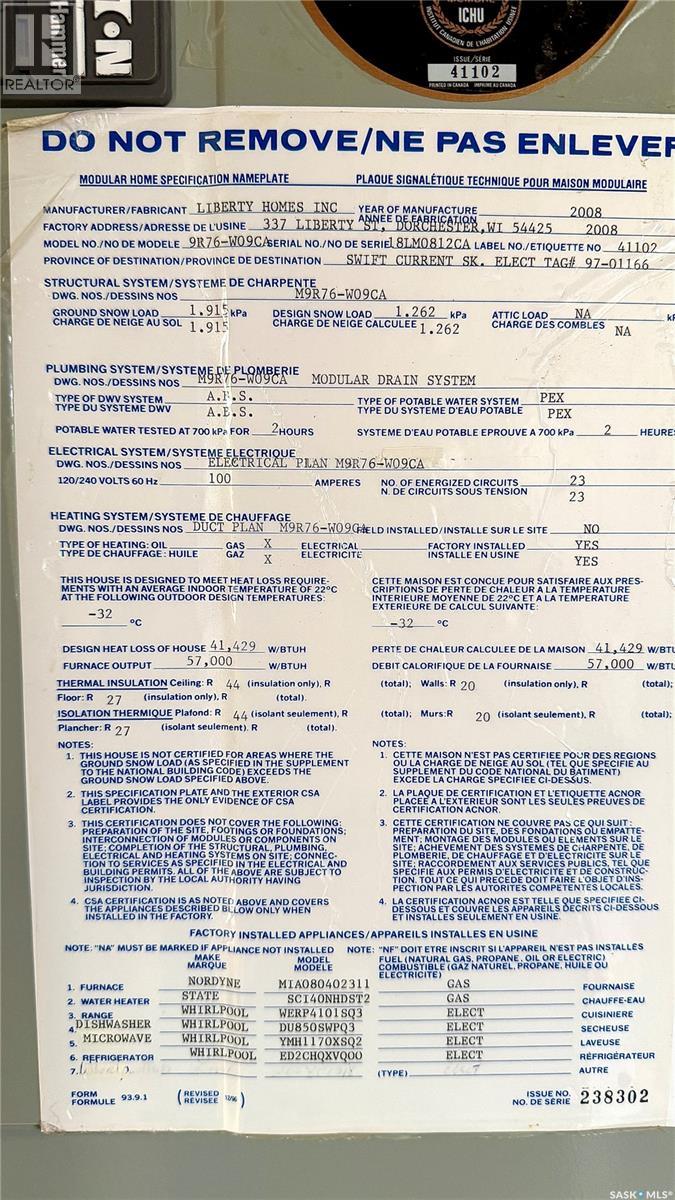 ICHU
INSTITUT CANADIEN DE L'HABITATION USINÉE
ISSUE/SÉRIE
41102
PRINTED IN CANADA IMPRIMÉ AU CANADA
REALTOR®
Hammer
T•N
DO NOT REMOVE/NE PAS ENLEVER
MODULAR HOME SPECIFICATION NAMEPLATE PLAQUE SIGNALÉTIQUE TECHNIQUE POUR MAISON MODULAIRE
MANUFACTURER/FABRICANT LIBERTY HOMES INC YEAR OF MANUFACTURE 2008
ANNEE DE FABRICATION 2008
FACTORY ADDRESS/ADRESSE DE L'USINE 337 LIBERTY ST, DORCHESTER, WI 54425
MODEL NO./NO DE MODELE 9R76-W09CA SERIAL NO./NO DE SERIE 18LM0812CA LABEL NO./ETIQUETTE NO 41102
PROVINCE OF DESTINATION/PROVINCE DE DESTINATION SWIFT CURRENT SK. ELECT TAG# 97-01166
STRUCTURAL SYSTEM/SYSTEME DE CHARPENTE
DWG. NOS./DESSINS NOS M9R76-W09CA
GROUND SNOW LOAD 1.915 kPa DESIGN SNOW LOAD 1.262 kPa ATTIC LOAD NA
CHARGE DE NEIGE AU SOL 1.915 CHARGE DE NEIGE CALCULEE 1.262 CHARGE DES COMBLES NA
PLUMBING SYSTEM/SYSTEME DE PLOMBERIE
DWG. NOS./DESSINS NOS M9R76-W09CA MODULAR DRAIN SYSTEM
TYPE OF DWV SYSTEM A.B.S. TYPE OF POTABLE WATER SYSTEM PEX
TYPE DU SYSTEME DWV A.B.S. TYPE DU SYSTEME D'EAU POTABLE PEX
POTABLE WATER TESTED AT 700 kPa FOR 2 HOURS SYSTEME D'EAU POTABLE EPROUVE A 700 kPa 2 HEURES
ELECTRICAL SYSTEM/SYSTEME ELECTRIQUE
DWG. NOS./DESSINS NOS ELECTRICAL PLAN M9R76-W09CA
120/240 VOLTS 60 Hz 100 AMPERES NO. OF ENERGIZED CIRCUITS 23
N. DE CIRCUITS SOUS TENSION 23
HEATING SYSTEM/SYSTEME DE CHAUFFAGE
DWG. NOS./DESSINS NOS DUCT PLAN M9R76-W09CA FIELD INSTALLED/INSTALLE SUR LE SITE NO
TYPE OF HEATING: OIL GAS X ELECTRICAL FACTORY INSTALLED YES
TYPE DE CHAUFFAGE: HUILE GAZ X ELECTRICITE INSTALLE EN USINE YES
THIS HOUSE IS DESIGNED TO MEET HEAT LOSS REQUIRE-
MENTS WITH AN AVERAGE INDOOR TEMPERATURE OF 22°C
AT THE FOLLOWING OUTDOOR DESIGN TEMPERATURES:
-32 °C
CETTE MAISON EST CONCUE POUR SATISFAIRE AUX PRES-
CRIPTIONS DE PERTE DE CHALEUR A LA TEMPERATURE
INTERIEURE MOYENNE DE 22°C ET A LA TEMPERATURE
EXTERIEURE DE CALCUL SUIVANTE:
-32 °C
DESIGN HEAT LOSS OF HOUSE 41,429 W/BTUH PERTE DE CHALEUR CALCULEE DE LA MAISON 41,429 W/BTU
FURNACE OUTPUT 57,000 W/BTUH DEBIT CALORIFIQUE DE LA FOURNAISE 57,000 W/BTU
THERMAL INSULATION Ceiling: R 44 (insulation only), R (total); Walls: R 20 (insulation only), R (total);
Floor: R 27 (insulation only), R (total).
ISOLATION THERMIQUE Plafond: R 44 (isolant seulement), R (total); Murs: R 20 (isolant seulement), R (total);
Plancher: R 27 (isolant seulement), R (total).
NOTES:
1. THIS HOUSE IS NOT CERTIFIED FOR AREAS WHERE THE
GROUND SNOW LOAD (AS SPECIFIED IN THE SUPPLEMENT
TO THE NATIONAL BUILDING CODE) EXCEEDS THE
GROUND SNOW LOAD SPECIFIED ABOVE.
2. THIS SPECIFICATION PLATE AND THE EXTERIOR CSA
LABEL PROVIDES THE ONLY EVIDENCE OF CSA
CERTIFICATION.
3. THIS CERTIFICATION DOES NOT COVER THE FOLLOWING:
PREPARATION OF THE SITE, FOOTINGS OR FOUNDATIONS;
INTERCONNECTION OF MODULES OR COMPONENTS ON
SITE; COMPLETION OF THE STRUCTURAL, PLUMBING,
ELECTRICAL AND HEATING SYSTEMS ON SITE; CONNEC-
TION TO SERVICES AS SPECIFIED IN THE ELECTRICAL AND
BUILDING PERMITS. ALL OF THE ABOVE ARE SUBJECT TO
INSPECTION BY THE LOCAL AUTHORITY HAVING
JURISDICTION.
4. CSA CERTIFICATION IS AS NOTED ABOVE AND COVERS
THE APPLIANCES DESCRIBED BELOW ONLY WHEN
INSTALLED IN THE FACTORY.
NOTES:
1. CETTE MAISON N'EST PAS CERTIFIEE POUR DES REGIONS
OU LA CHARGE DE NEIGE AU SOL (TEL QUE SPECIFIE AU
SUPPLEMENT DU CODE NATIONAL DU BATIMENT)
EXCEDE LA CHARGE SPECIFIEE CI-DESSUS.
2. LA PLAQUE DE CERTIFICATION ET L'ETIQUETTE ACNOR
PLACEE A L'EXTERIEUR SONT LES SEULES PREUVES DE
CERTIFICATION ACNOR.
3. CETTE CERTIFICATION NE COUVRE PAS CE QUI SUIT:
PREPARATION DU SITE, DES FONDATIONS OU EMPATTE-
MENT; MONTAGE DES MODULES OU ELEMENTS SUR LE
SITE; ACHEVEMENT DES SYSTEMES DE CHARPENTE, DE
PLOMBERIE, DE CHAUFFAGE ET D'ELECTRICITE SUR LE
SITE; RACCORDEMENT AUX SERVICES PUBLICS, TEL QUE
SPECIFIE AUX PERMIS D'ELECTRICITE ET DE CONSTRUC-
TION. TOUT CE QUI PRECEDE DOIT FAIRE L'OBJET D'INS-
PECTION PAR LES AUTORITES COMPETENTES LOCALES.
4. LA CERTIFICATION ACNOR EST TELLE QUE SPECIFIEE CI-
DESSUS ET COUVRE LES APPAREILS DECRITS CI-DESSOUS
ET INSTALLES SEULEMENT EN USINE.
FACTORY INSTALLED APPLIANCES/APPAREILS INSTALLES EN USINE
NOTE: "NA" MUST BE MARKED IF APPLIANCE NOT INSTALLED NOTE: "NF" DOIT ETRE INSCRIT SI L'APPAREIL N'EST PAS INSTALLÉS
MAKE MODEL FUEL (NATURAL GAS, PROPANE, OIL OR ELECTRIC)
MARQUE MODELE COMBUSTIBLE (GAZ NATUREL, PROPANE, HUILE OU
ELECTRICITÉ)
1. FURNACE NORDYNE MIA080402311 GAS FOURNAISE
2. WATER HEATER STATE SCI40NHDST2 GAS CHAUFFE-EAU
3. RANGE WHIRLPOOL WERP4101SQ3 ELECT CUISINIERE
4. DISHWASHER WHIRLPOOL DU850SWPQ3 ELECT SECHEUSE
5. MICROWAVE WHIRLPOOL YMH1170XSQ2 ELECT LAVEUSE
6. REFRIGERATOR WHIRLPOOL ED2CHQXVQ00 ELECT RÉFRIGÉRATEUR
7. (TYPE) AUTRE
FORM
FORMULE 93.9.1 (REVISED RÉVISÉE 12/96) ISSUE NO.
NO. DE SÉRIE 238302
SASK MLS®